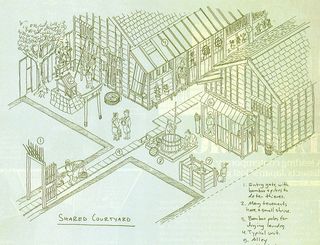 SHARED COURTYARD
1. Entry gate with
bamboo spikes to
deter thieves.
2. Many tenements
have a small shrine.
3. Bamboo poles for
drying laundry
4. Typical unit.
5. Alley